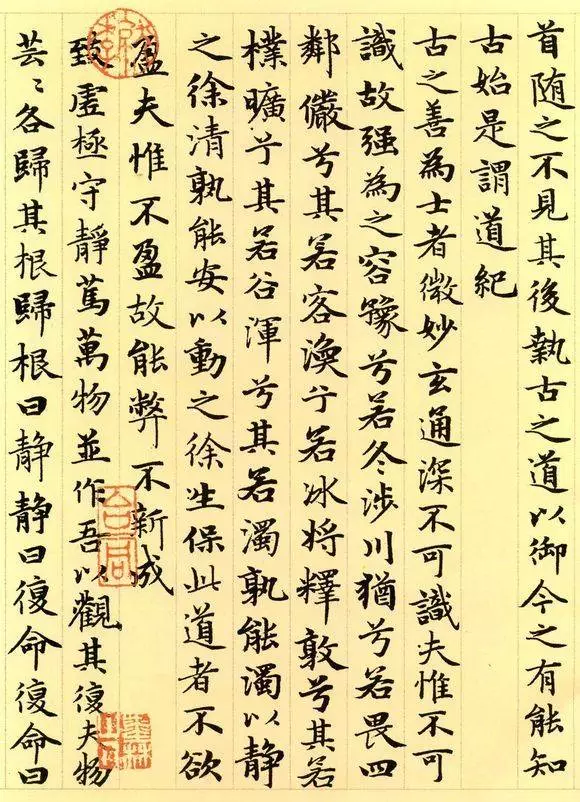 首随之不見其後執古之道以御今之有能知
古始是謂道紀
古之善為士者微妙玄通深不可識夫惟不可
識故强為之容豫兮若冬涉川猶兮若畏四
鄰儼兮其若客渙兮若冰将釋敦兮其若
樸曠兮其若谷渾兮其若濁孰能濁以静
之徐清孰能安以動之徐生保此道者不欲
盈夫惟不盈故能弊不新成
致虛極守靜篤萬物並作吾以觀其復夫物
芸〻各歸其根歸根曰静静曰復命復命曰